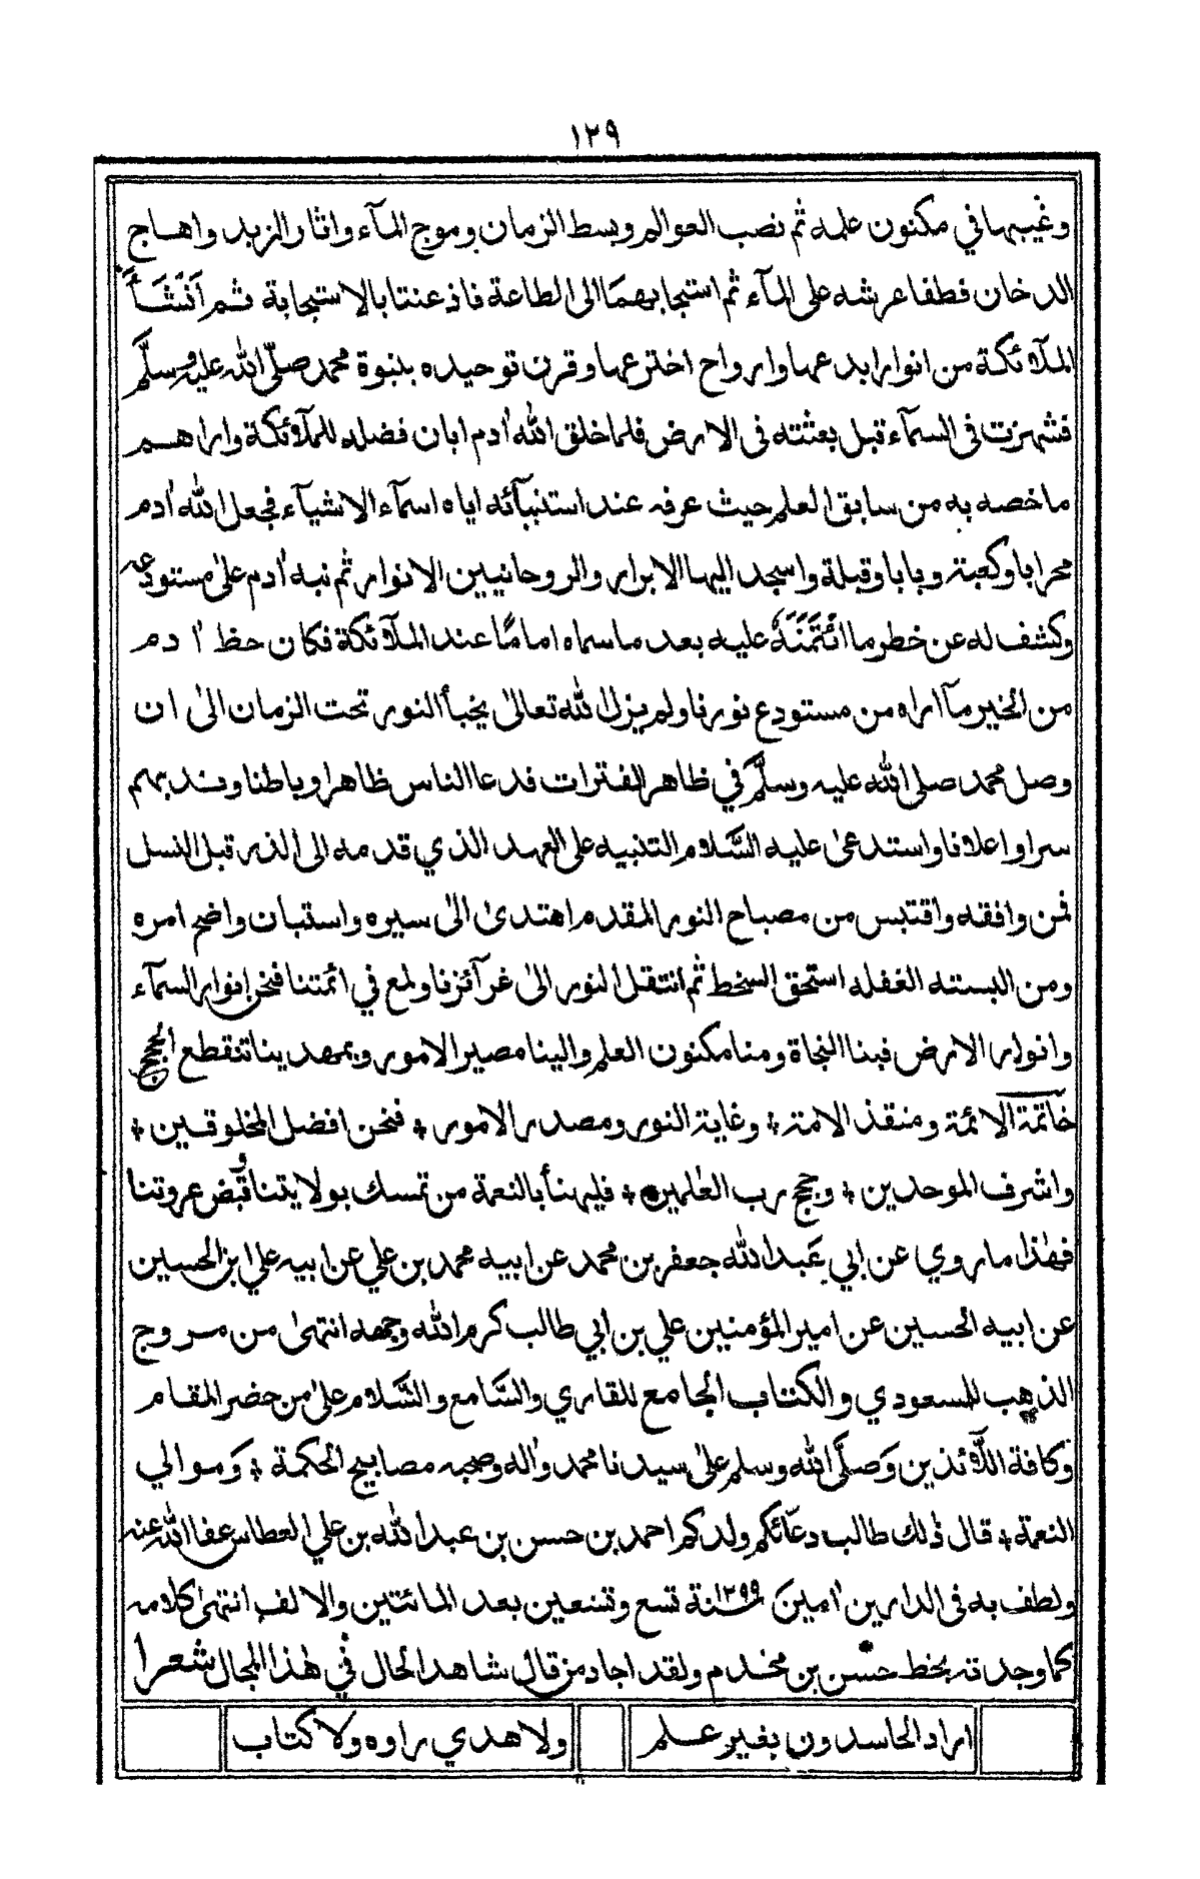 ١٢٩
وغيبها في مكنون علمه ثم نصب العوالم وبسط الزمان وموج المآء واثار الزبد واهاج
الدخان فطفا عرشه على المآء ثم استجابهما الى الطاعة فاذعنتا بالاستجابة ثم اَنْشَأَ
الملآئكة من انوار ابدعها وارواح اخترعها وقرن توحيده بنبوة محمد صلّى الله عليه وسلَّم
فشهرت فى السمآء قبل بعثته فى الارض فلما خلق الله اٰدم ابان فضله للملآئكة واراهم
ما خصه به من سابق العلم حيث عرفه عند استنبآئه اياه اسمآء الاشيآء فجعل الله اٰدم
محرابا وكعبة وبابا وقبلة واسجد اليها الابرار والروحانيين الانوار ثم نبه اٰدم علىٰ مستودعه
وكشف له عن خطر ما ائْتَمَنَهُ عليه بعد ما سماه امامًا عند الملآئكة فكان حظ اٰدم
من الخير مآ اراه من مستودع نورنا ولم يزل الله تعالىٰ يخبأ النور تحت الزمان الىٰ ان
وصل محمد صلى الله عليه وسلَّم في ظاهر الفترات فدعا الناس ظاهرا وباطنا وندبهم
سرا واعلانا واستدعىٰ عليه السَّلام التنبيه على العهد الذي قدمه الى الذر قبل النسل
فمن وافقه واقتبس من مصباح النور المقدم اهتدىٰ الىٰ سيره واستبان واضح امره
ومن البسته الغفله استحق السخط ثم انتقل النور الىٰ غرآئزنا ولمع في ائمتنا فنحن انوار السمآء
وانوار الارض فبنا النجاة ومنا مكنون العلم والينا مصير الامور وبمهدينا تنقطع الحجج
خاتمة الائمة ومنقذ الامة ؛ وغاية النور ومصدر الامور ؛ فنحن افضل المخلوقين ؛
واشرف الموحدين ؛ وحجج رب العٰلمين ؛ فليهنأ بالنعمة من تمسك بولايتنا وقبض عروتنا
فهٰذا ما روي عن ابي عَبد الله جعفر بن محمد عن ابيه محمد بن علي عن ابيه علي ابن الحسين
عن ابيه الحسين عن امير المؤمنين علي بن ابي طالب كرم الله وجهه انتهىٰ من مروج
الذهب للمسعودي والكتاب الجامع للقاري والسَّامع والسَّلام علىٰ من حضر المقام
وكافة اللّآئذين وَصلَّى الله وسلم علىٰ سيدنا محمد واٰله وصحبه مصابيح الحكمة ؛ وَموالي
النعمة ؛ قال ذلك طالب دعآئكم ولدكم احمد بن حسن بن عبد الله بن علي العطاس عفا الله عنه
ولطف به فى الدارين اٰمينَ ١٢٩٩ سنة تسع وتسعين بعد المائتين والالف انتهىٰ كلامه
كما وجدته بخط حسن بن مخدم ولقد اجاد من قال شاهد الحال في هٰذا المجال شعرا
اراد الحاسدون بغير علم ولا هدي راوه ولا كتاب